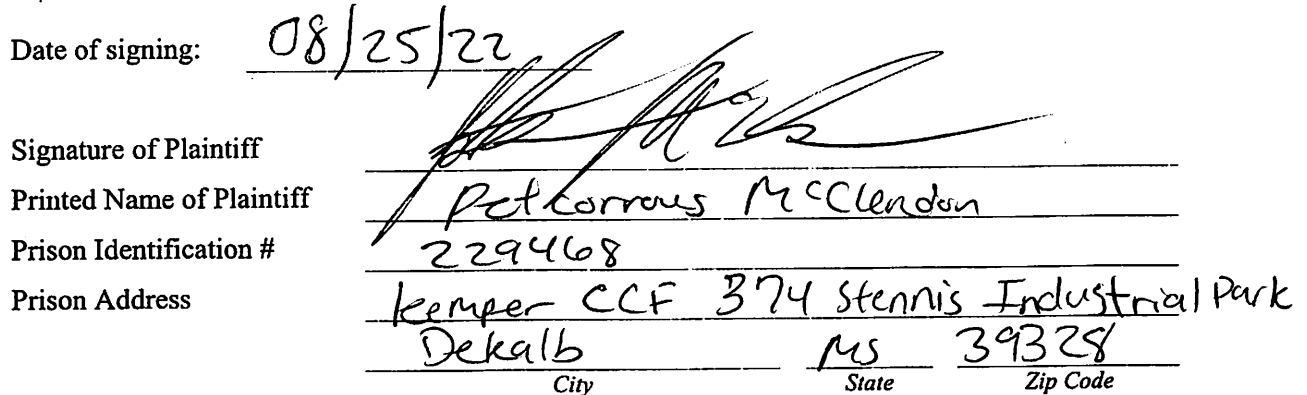 Date of signing: 08/25/22
Signature of Plaintiff
Printed Name of Plaintiff McClendon
Prison Identification # 229468
Prison Address kemper CCF 374 Stennis Industrial Park
Dekalb MS 39328
City State Zip Code